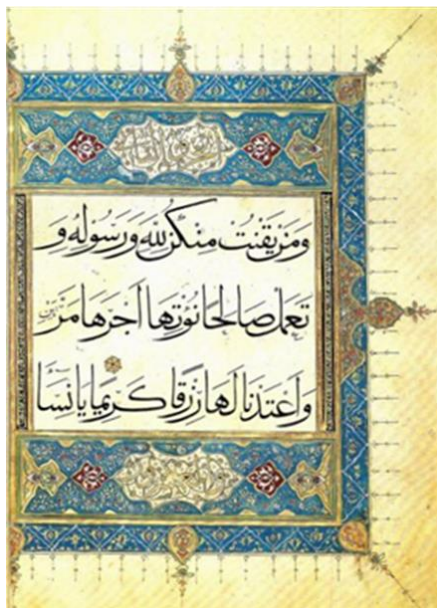 وَمَنْ يَقْنُتْ مِنْكُنَّ لِلَّهِ وَرَسُولِهِ وَ
تَعْمَلْ صَالِحًا نُؤْتِهَا أَجْرَهَا مَرَّتَيْنِ
وَأَعْتَدْنَا لَهَا رِزْقًا كَرِيمًا يَا نِسَا